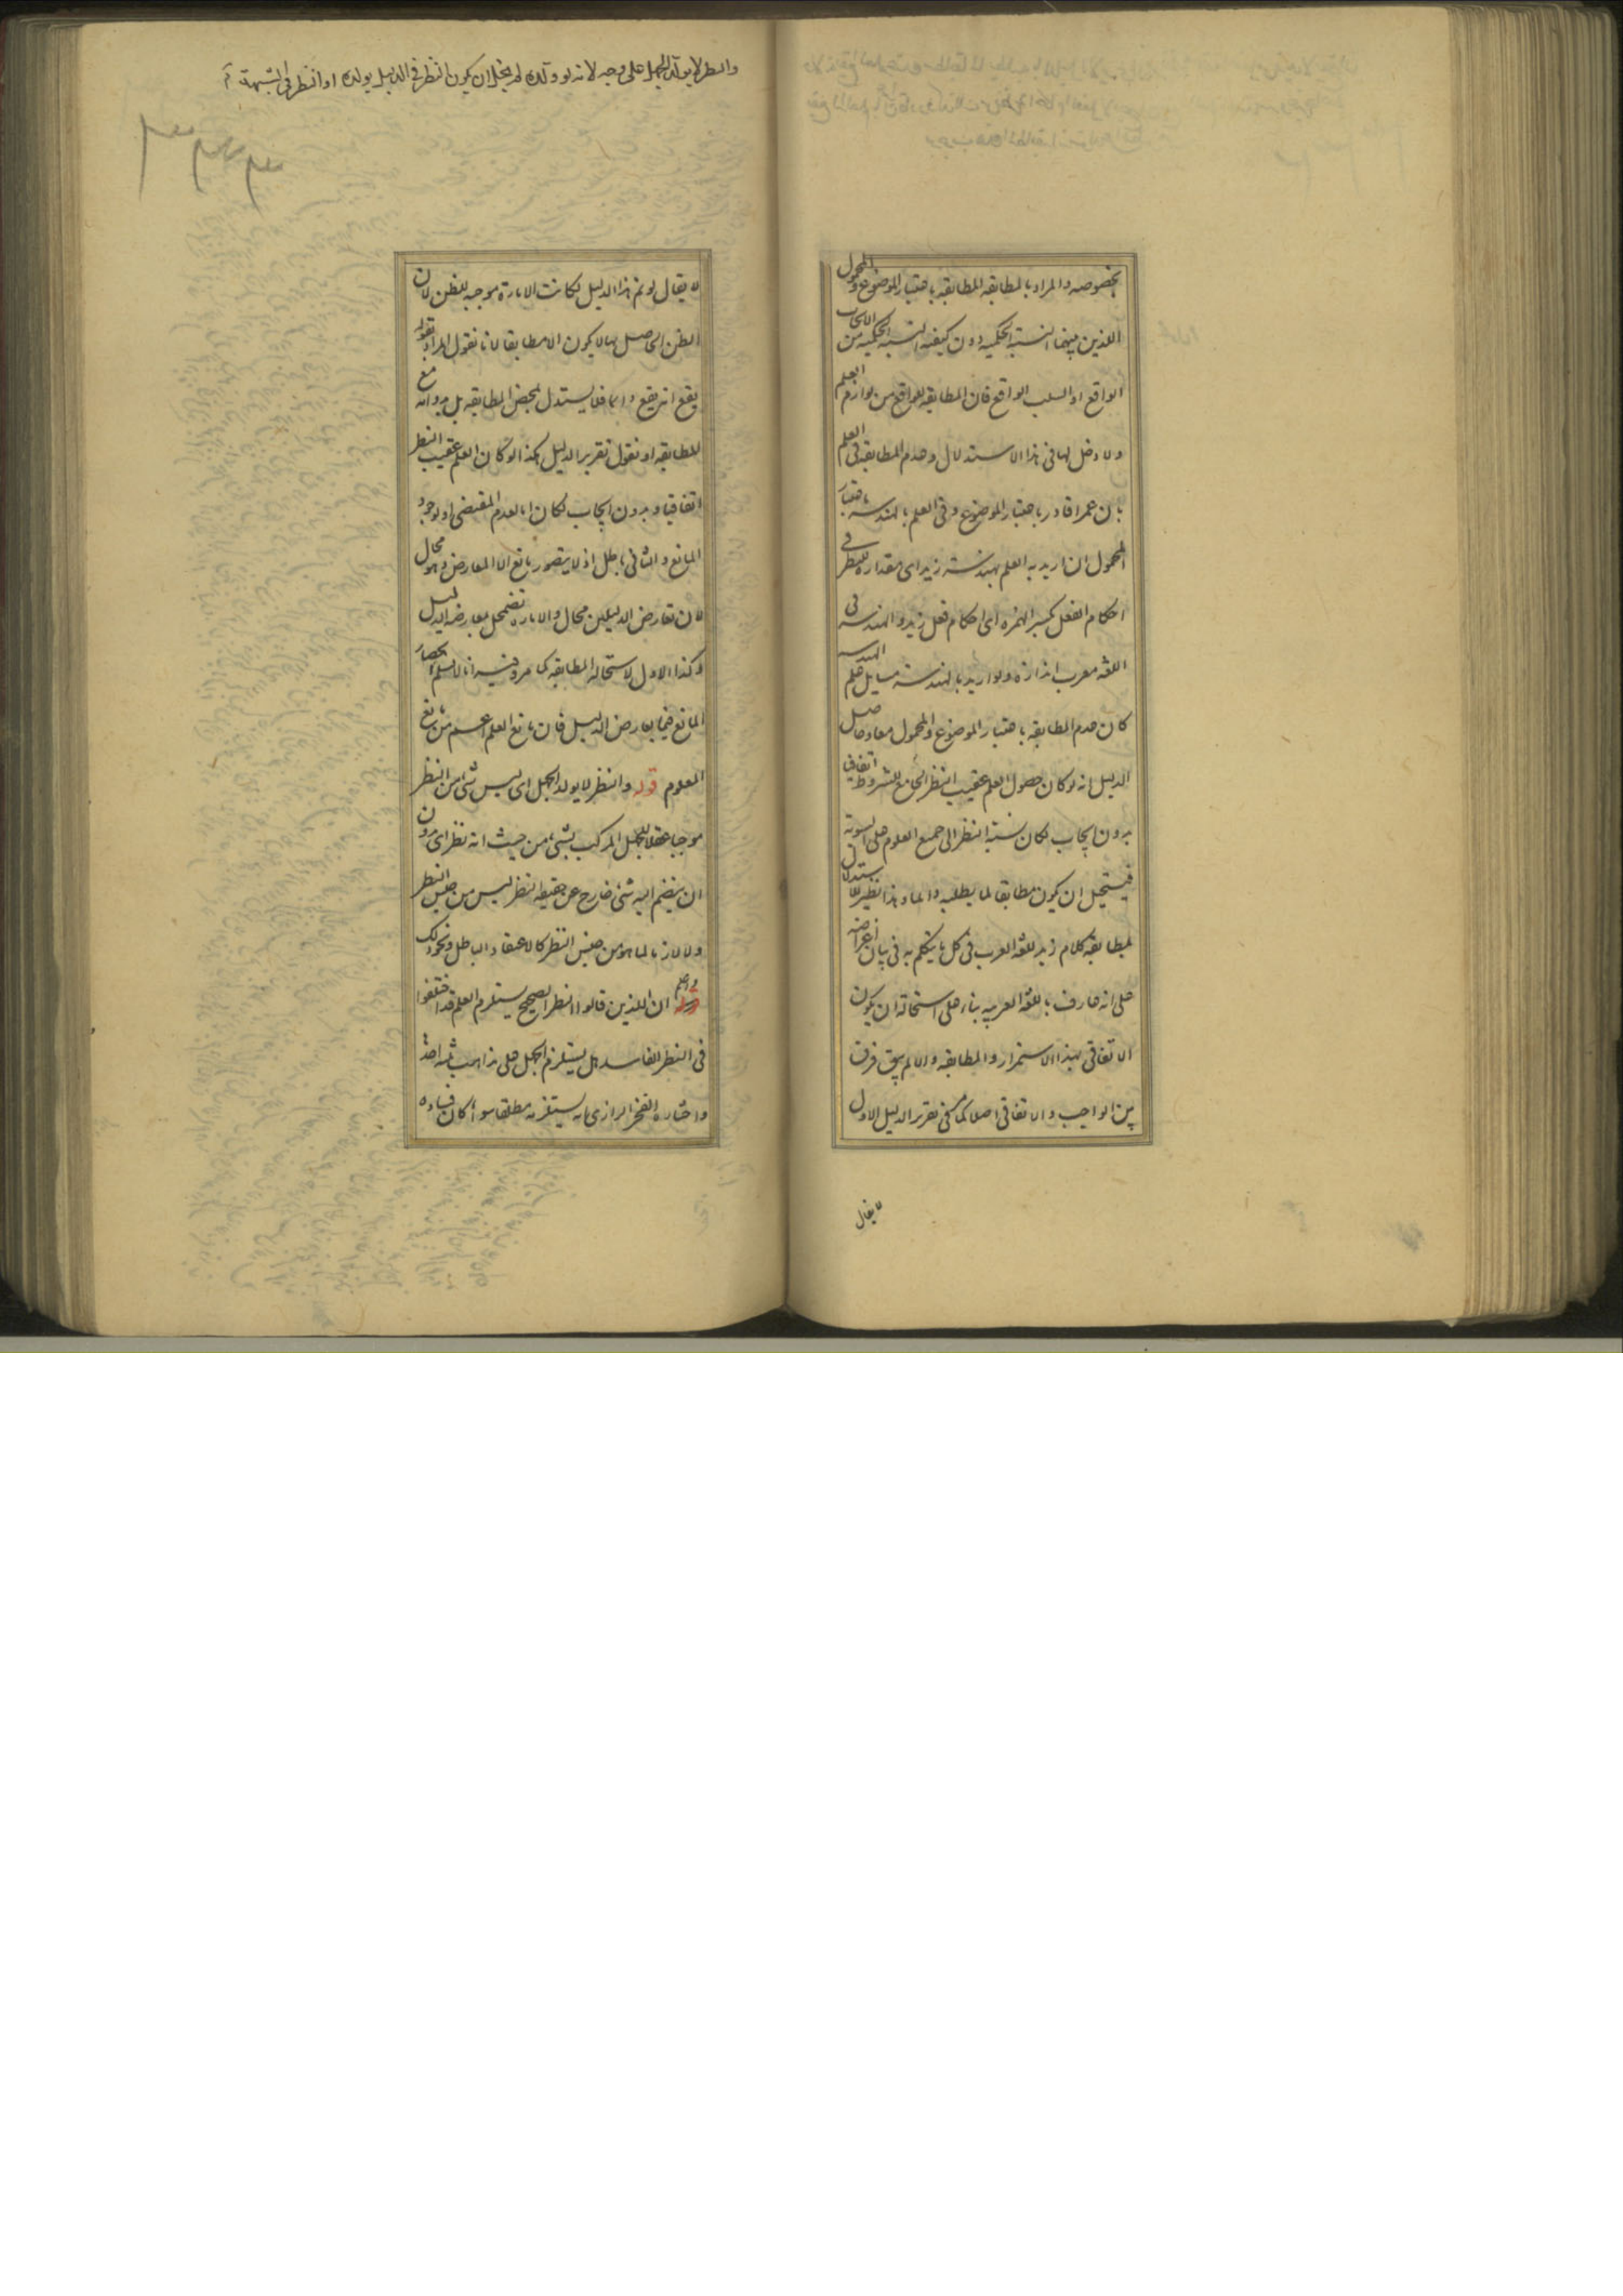 بخصوصه والمراد بالمطابقه المطابقه باعتبار الموضوع والمحمول
اللذين بينهما النسبة الحكميه دون كيفيه النسبه الحكميه من الايجاب
الواقع او السلب الواقع فان المطابقه للواقع من لوازم العلم
ولا دخل لها فى هذا الاستدلال وعدم المطابقه فى العلم
بان عمرا قادر باعتبار الموضوع وفى العلم بالهندسه باعتبار
المحمول ان اريد به العلم بهندسة زيد اى مقداره للنظر فى
احكام الفعل بكسر الهمزه اى احكام فعل زيد والهندسه فى
اللغه معرب اندازه ولو اريد بالهندسة مسايل علم الهندسه
كان عدم المطابقه باعتبار الموضوع والمحمول معا وحاصل
الدليل انه لو كان حصول العلم عقيب النظر الجامع للشروط اتفاقى
بدون ايجاب لكان نسبة النظر الى جميع العلوم على السوية
فيستحيل ان يكون مطابقا لما يطلبه دائما وهذا نظير الاستدلال
بمطابقه كلام زيد للغه العرب فى كل ما يتكلم به فى بيان اغراضه
على انه عارف باللغه العربيه بناء على استحالة ان يكون
الاتفاقى بهذا الاستمرار والمطابقه والا لم يبق فرق
بين الواجب والاتفاقى اصلا كما مر فى تقرير الدليل الاول
لا يقال
والنظر لا يولد الجهل على وجه لانه لو ولده لم يخل ان يكون النظر فى الدليل يولده او النظر فى الشبهة
لا يقال لو تم هذا الدليل لكانت الامارة موجبه للظن لان
الظن الحاصل بها لا يكون الا مطابقا لانا نقول المراد بقوله
يقع انه يقع دائما فلا يستدل بمحض المطابقه بل بدوامه مع
المطابقه او نقول تقرير الدليل هكذا لو كان العلم عقيب النظر
اتفاقيا وبدون ايجاب لكان اما لعدم المقتضى او لوجود
المانع والثانى باطل اذ لا يتصور مانع الا المعارض وهو محال
لان تعارض الدليلين محال والاماره تضمحل بمعارضه الدليل
وكذا الاول لاستحاله المطابقه كما مر وفيه انا لا نسلم انحصار
المانع فيما يعارض الدليل فان مانع العلم اعم من مانع
المعلوم قوله والنظر لا يولد الجهل اى ليس شئ من النظر
موجبا عقلا للجهل المركب بشئ من حيث انه نظر اى بدون
ان ينضم اليه شئ خارج عن حقيقه النظر ليس من جنس النظر
ولا لازما لما هو من جنس النظر كالاعتقاد الباطل ونحو ذلك
واعلم ان اللذين قالوا النظر الصحيح يستلزم العلم قد اختلفوا
فى النظر الفاسد هل يستلزم الجهل على مذاهب ثلثه احدها
واختاره الفخر الرازى انه يستلزمه مطلقا سواء كان فساده